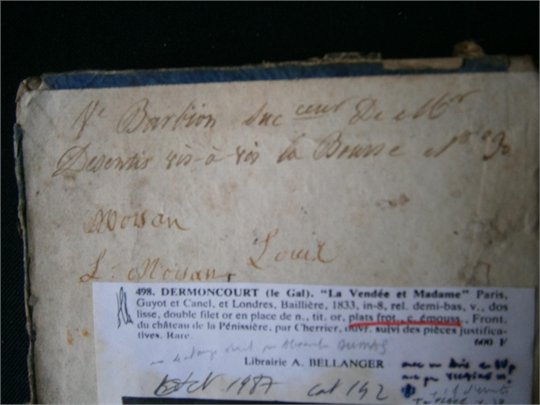 Ve Barbion Succeur De Mr
Desentis vis-à-vis la Bourse No
Moisan
L. Moisan Louis
498. DERMONCOURT (le Gal). "La Vendée et Madame" Paris,
Guyot et Canel, et Londres, Baillière, 1833, in-8, rel. demi-bas, v., dos
lisse, double filet or en place de n., tit. or, plats frot., c. émouss. Front.
du château de la Pénissière, par Cherrier, ouvr. suivi des pièces justifica-
tives. Rare. 600 F
Alexandre DUMAS
Librairie A. BELLANGER
Oct 1987 Cat 142